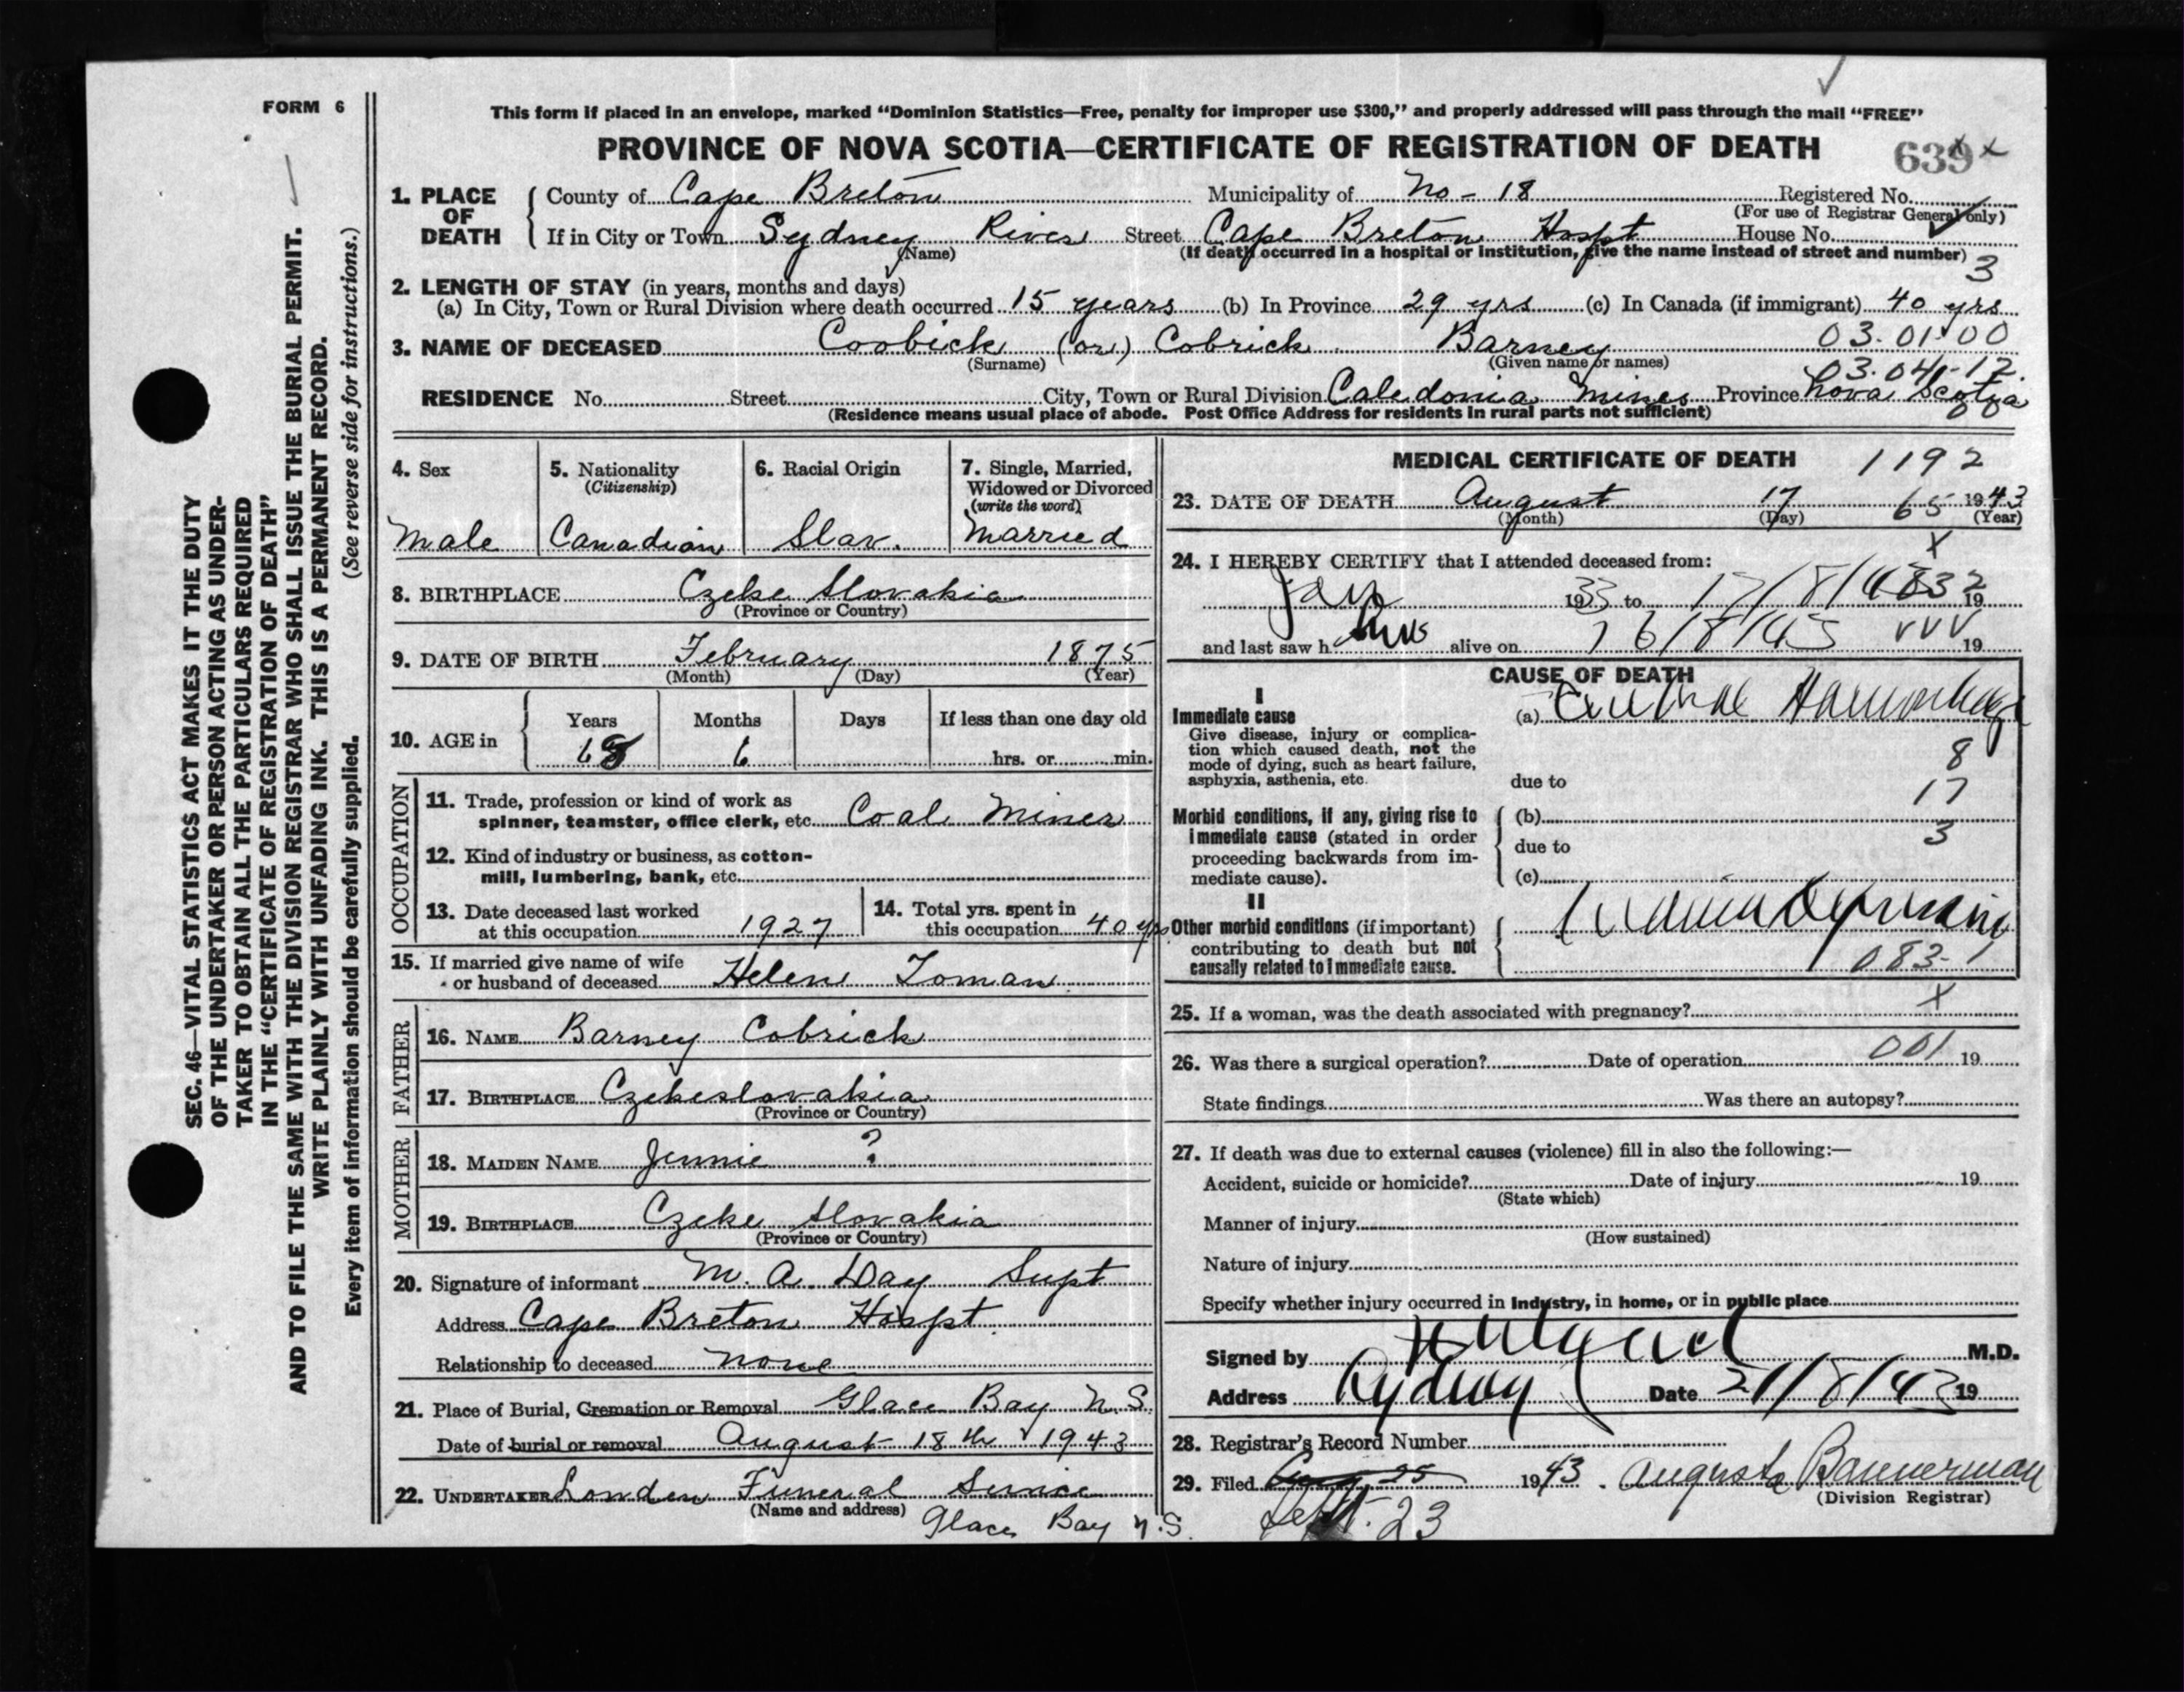 FORM 6
This form if placed in an envelope, marked “Dominion Statistics—Free, penalty for improper use $300,” and properly addressed will pass through the mail “FREE”
PROVINCE OF NOVA SCOTIA—CERTIFICATE OF REGISTRATION OF DEATH
639 x x
1. PLACE OF DEATH
County of Cape Breton Municipality of No - 18 Registered No.
(For use of Registrar General only)
If in City or Town Sydney River Street Cape Breton Hospt House No.
(Name) (If death occurred in a hospital or institution, give the name instead of street and number)
3
2. LENGTH OF STAY (in years, months and days)
(a) In City, Town or Rural Division where death occurred 15 years (b) In Province 29 yrs (c) In Canada (if immigrant) 40 yrs
3. NAME OF DECEASED Coobick (or) Cobrick Barney 03.01.00
(Surname) (Given name or names)
03.04-12.
RESIDENCE No. Street City, Town or Rural Division Caledonia Mines Province Nova Scotia
(Residence means usual place of abode. Post Office Address for residents in rural parts not sufficient)
4. Sex
Male
5. Nationality
(Citizenship)
Canadian
6. Racial Origin
Slav.
7. Single, Married,
Widowed or Divorced
(write the word)
Married
8. BIRTHPLACE Czeke Slovakia
(Province or Country)
9. DATE OF BIRTH February 1875
(Month) (Day) (Year)
10. AGE in
Years Months Days If less than one day old
68 6 hrs. or min.
OCCUPATION
11. Trade, profession or kind of work as
spinner, teamster, office clerk, etc. Coal Miner
12. Kind of industry or business, as cotton-
mill, lumbering, bank, etc.
13. Date deceased last worked
at this occupation 1927
14. Total yrs. spent in
this occupation 40 yrs
15. If married give name of wife
or husband of deceased Helen Toman
FATHER
16. NAME Barney Cobrick
17. BIRTHPLACE Czekeslovakia
(Province or Country)
MOTHER
18. MAIDEN NAME Jennie ?
19. BIRTHPLACE Czeke Slovakia
(Province or Country)
20. Signature of informant M. A. Day Supt
Address Cape Breton Hospt.
Relationship to deceased none
21. Place of Burial, Cremation or Removal Glace Bay N.S.
Date of burial or removal August 18th 1943
22. UNDERTAKER Londen Funeral Service
(Name and address) Glace Bay N.S.
MEDICAL CERTIFICATE OF DEATH 1192
23. DATE OF DEATH August 17 65 1943
(Month) (Day) (Year)
x
24. I HEREBY CERTIFY that I attended deceased from:
Jan 1933 to 17/8/43 19
and last saw h alive on 16/8/43 19
CAUSE OF DEATH
I
Immediate cause
Give disease, injury or complica-
tion which caused death, not the
mode of dying, such as heart failure,
asphyxia, asthenia, etc.
(a) Cerebral Haemorrhage
8
due to
17
Morbid conditions, if any, giving rise to
immediate cause (stated in order
proceeding backwards from im-
mediate cause).
(b)
3
due to
(c)
II
Other morbid conditions (if important)
contributing to death but not
causally related to immediate cause.
083-1
25. If a woman, was the death associated with pregnancy? x
26. Was there a surgical operation? Date of operation 001 19
State findings Was there an autopsy?
27. If death was due to external causes (violence) fill in also the following:—
Accident, suicide or homicide? Date of injury 19
(State which)
Manner of injury
(How sustained)
Nature of injury
Specify whether injury occurred in industry, in home, or in public place
Signed by M.D.
Address Sydney Date 21/8/43 19
28. Registrar's Record Number
29. Filed Aug 25 1943. Augusta Bannerman
Sept. 23 (Division Registrar)
SEC. 46—VITAL STATISTICS ACT MAKES IT THE DUTY
OF THE UNDERTAKER OR PERSON ACTING AS UNDER-
TAKER TO OBTAIN ALL THE PARTICULARS REQUIRED
IN THE “CERTIFICATE OF REGISTRATION OF DEATH”
AND TO FILE THE SAME WITH THE DIVISION REGISTRAR WHO SHALL ISSUE THE BURIAL PERMIT.
WRITE PLAINLY WITH UNFADING INK. THIS IS A PERMANENT RECORD.
Every item of information should be carefully supplied. (See reverse side for instructions.)